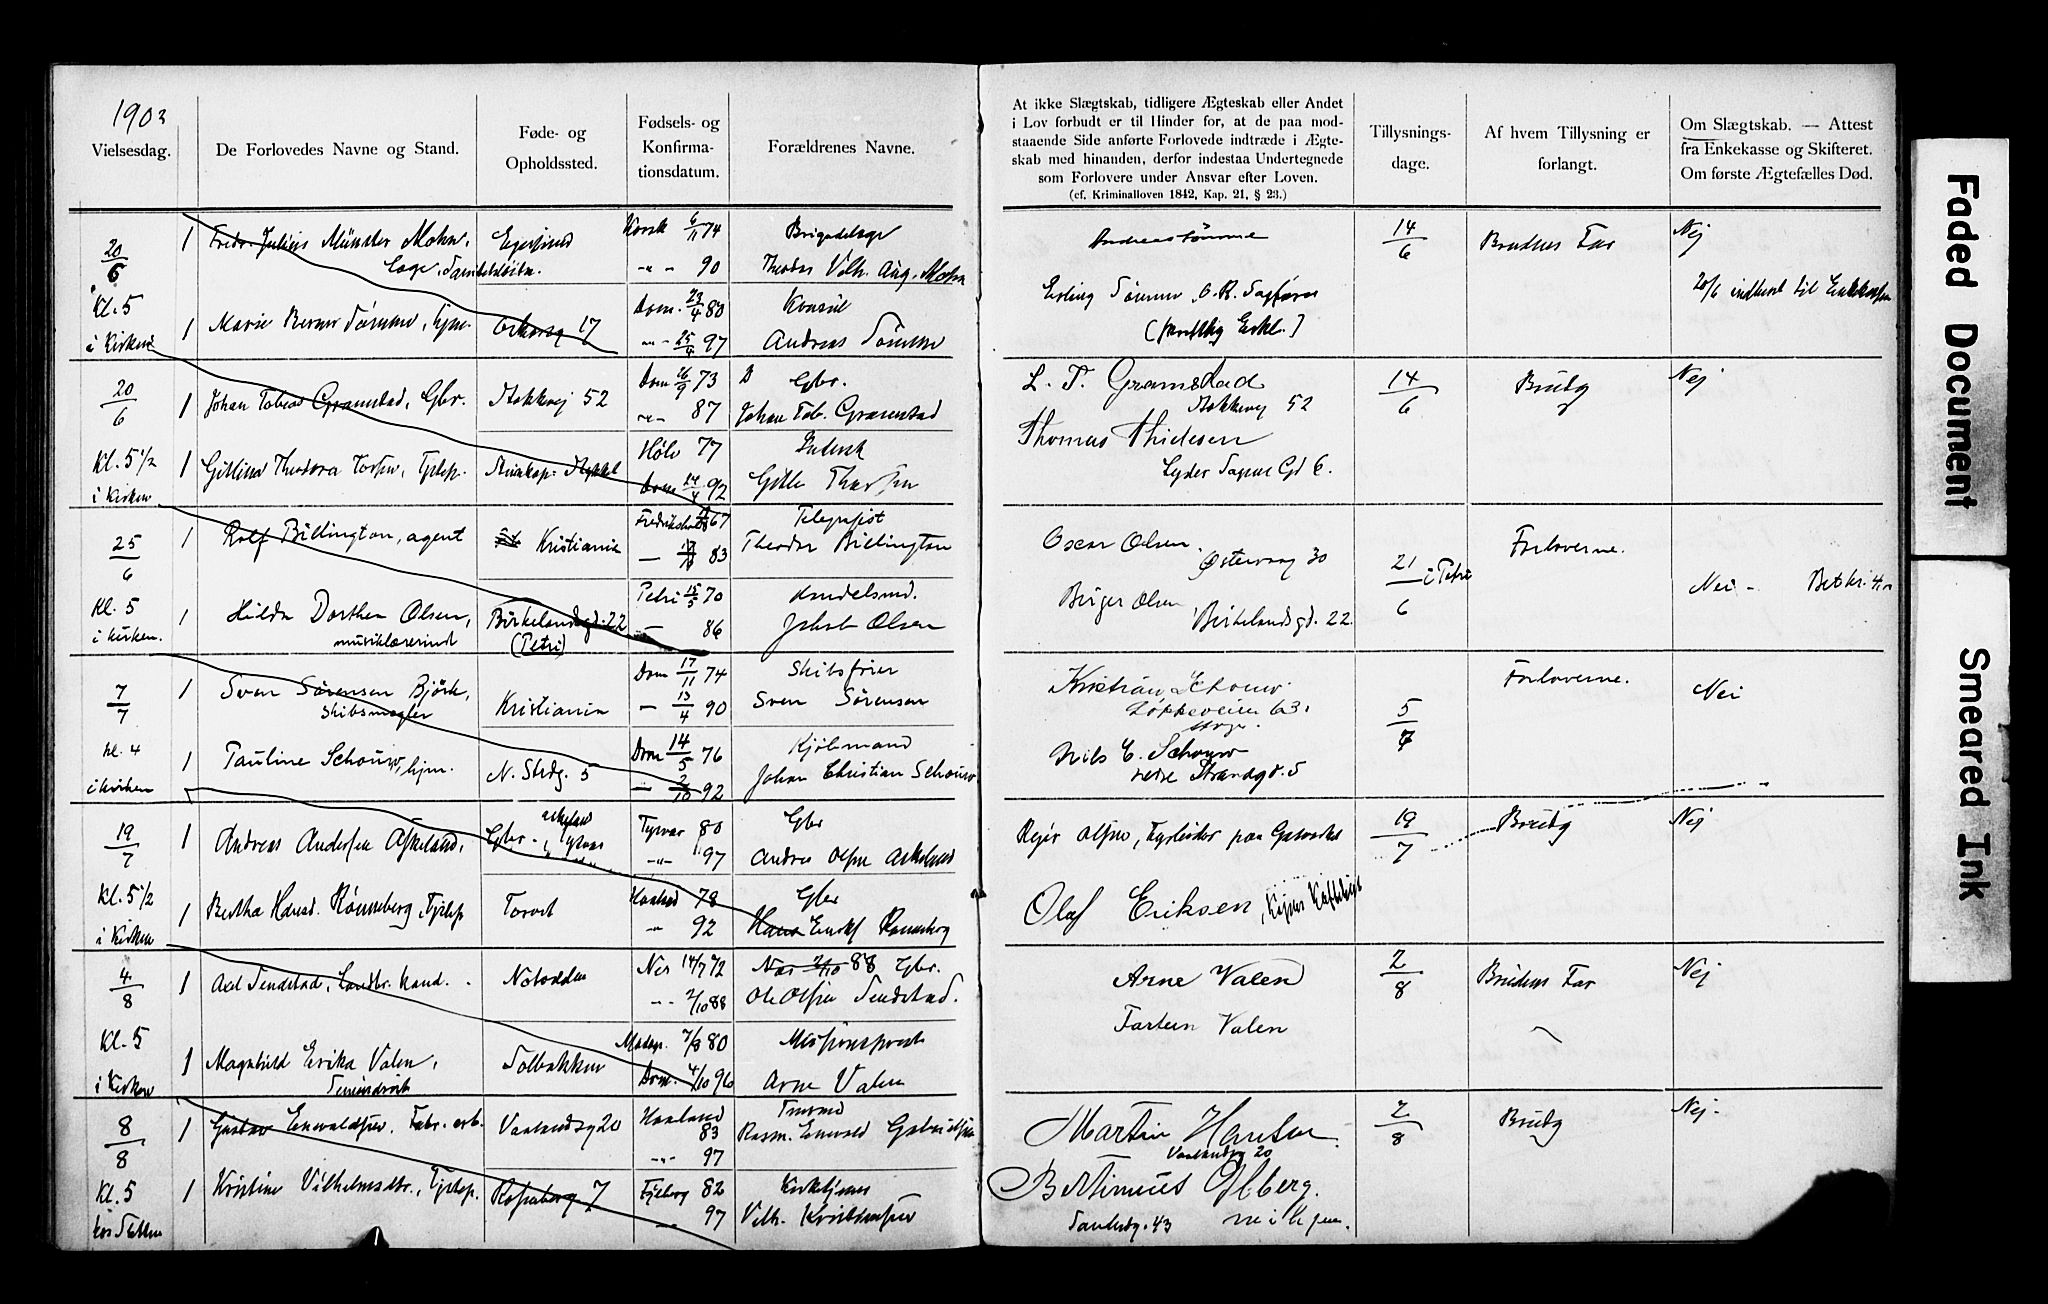 1903
Vielsesdag.
De Forlovedes Navne og Stand.
Føde- og
Opholdssted.
Fødsels- og
Konfirma-
tionsdatum.
Forældrenes Navne.
20/6
Kl. 5
i Kirken
1 Fredr. Julius Münster Mohn,
Læge,
Egersund
6/11 74
90
Brigadelæge
Theodor Vilh. Aug. Mohn
1 Marie Berner Sømme, hjm.
17
Dom. 23/4 80
25/4 97
Konsul
Andreas Sømme
20/6
Kl. 5 1/2
i Kirken
1 Johan Tobias Gramstad, Gbr.
Stokkvej 52
Dom 26/9 73
87
Gbr.
Johan Tob. Gramstad
1 Theodora
Høle 77
Dom 14/4 92
25/6
Kl. 5
i kirken.
1 Rolf Billington, agent
Kristiania
67
83
Telegrafist
Theodor Billington
1 Hilda Dorthea Olsen,
musiklærerinde
Birkelandsgd. 22
(Petri)
Petri 15/5 70
86
Handelsmd.
Jakob Olsen
7/7
kl. 4
i kirken
1 Sven Sörensen Björk,
skibsmægler
Kristiania
Dom 17/11 74
13/4 90
Skibsfører
Sven Sörensen
1 Pauline Schouw, hjm.
N. Strdg. 5
Dom 14/5 76
2/10 92
Kjøbmand
Johan Christian Schouw
19/7
Kl. 5 1/2
i Kirken
1 Andreas Andersen Askeland,
Gbr.
Tysvær 80
97
Gbr
Andreas Olsen Askeland
1 Bertha Rønneberg, Tjpig
Torvet
Haaland 78
92
Gbr
Hans
4/8
Kl. 5
i Kirken
1 Axel Tendstad, Landbr. kand.
Notodden
Nes 14/7 72
2/10 88
Nes 2/10 88 Gbr.
Ole Olsen Tendstad.
1 Magnhild Erika Valen,
Solbakken
7/8 80
Dom. 4/10 96
Missionsprest
Arne Valen
8/8
Kl. 5
1 Gustav Enevaldsen, Fabr. arb.
Vaalandsg 20
Haaland
83
97
Rasm. Enevald Gabrielsen
1 Kristine Vilhelmsdtr., Tjpig.
Rosenberg 7
Fjelberg 82
97
Kirketjener
Vilh. Kristensen
At ikke Slægtskab, tidligere Ægteskab eller Andet
i Lov forbudt er til Hinder for, at de paa mod-
staaende Side anførte Forlovede indtræde i Ægte-
skab med hinanden, derfor indestaa Undertegnede
som Forlovere under Ansvar efter Loven.
(cf. Kriminalloven 1842, Kap. 21, § 23.)
Tillysnings-
dage.
Af hvem Tillysning er
forlangt.
Om Slægtskab. — Attest
fra Enkekasse og Skifteret.
Om første Ægtefælles Død.
Andreas Sømme
14/6
Brudens Far
Nej
Erling Sømme, O. R. Sagfører
(skriftlig Erkl.)
20/6 indberet til Enkekassen
L. T. Gramstad
Stokkevej 52
14/6
Brudg
Nej
Thomas Thidesen
Lyder Sagens Gd 6.
Oscar Olsen,
Østervaag 30
21/6 i Petri
Forloverne.
Nei -
Birger Olsen, Birkelandsgd. 22.
Kristian Schouw
Løkkeveien 63.
5/7
Forloverne.
Nei
Nils C. Schouw
nedre Strandgd. 5
19/7
Brudg
Nej
Olaf Eriksen,
Arne Valen
2/8
Brudens Far
Nej
Tarlein Valen
Martin Hansen
Vaalandsg 20
2/8
Brudg
Nej.
Bertinius Olberg.
43
Faded Document
Smeared Ink